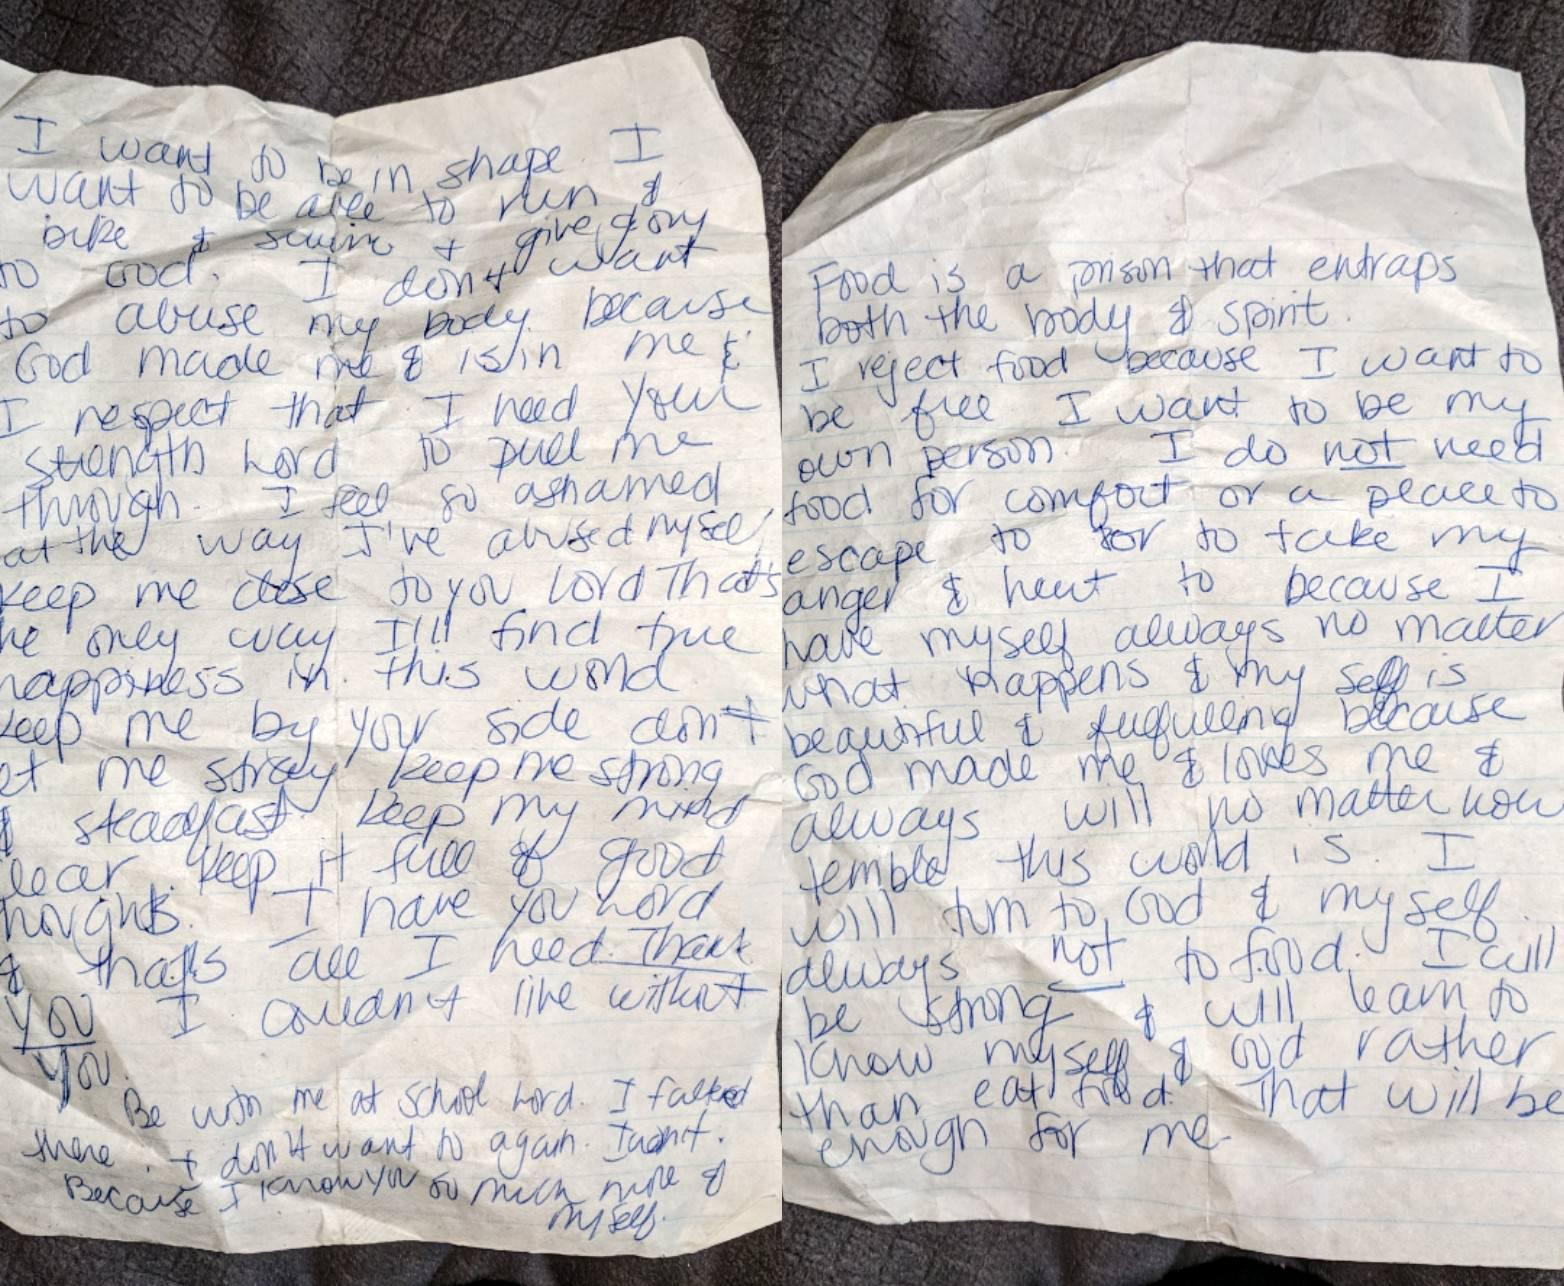 I want to be in shape. I
want to be able to run &
bike & swim + give glory
to God. I don't want
to abuse my body because
God made me & is in me &
I respect that I need your
strength Lord to pull me
through. I feel so ashamed
at the way I've abused myself
keep me close to you Lord That's
he only way I'll find true
happiness in this world
keep me by your side don't
et me stray keep me strong
& steadfast keep my mind
lear keep it full of good
houghts. I have you Lord
& that's all I need. Thank
you I couldn't live without
you.
Be with me at school Lord. I failed
there & don't want to again. I won't.
Because I know you so much more &
myself.
Food is a prison that entraps
both the body & spirit.
I reject food because I want to
be free I want to be my
own person. I do not need
food for comfort or a place to
escape to or to take my
anger & hurt to because I
have myself always no matter
what happens & my self is
beautiful & fulfulling because
God made me & loves me &
always will no matter how
terrible this world is. I
will turn to God & myself.
always not to food. I will
be strong & will learn to
know myself & God rather
than eat food. That will be
enough for me.